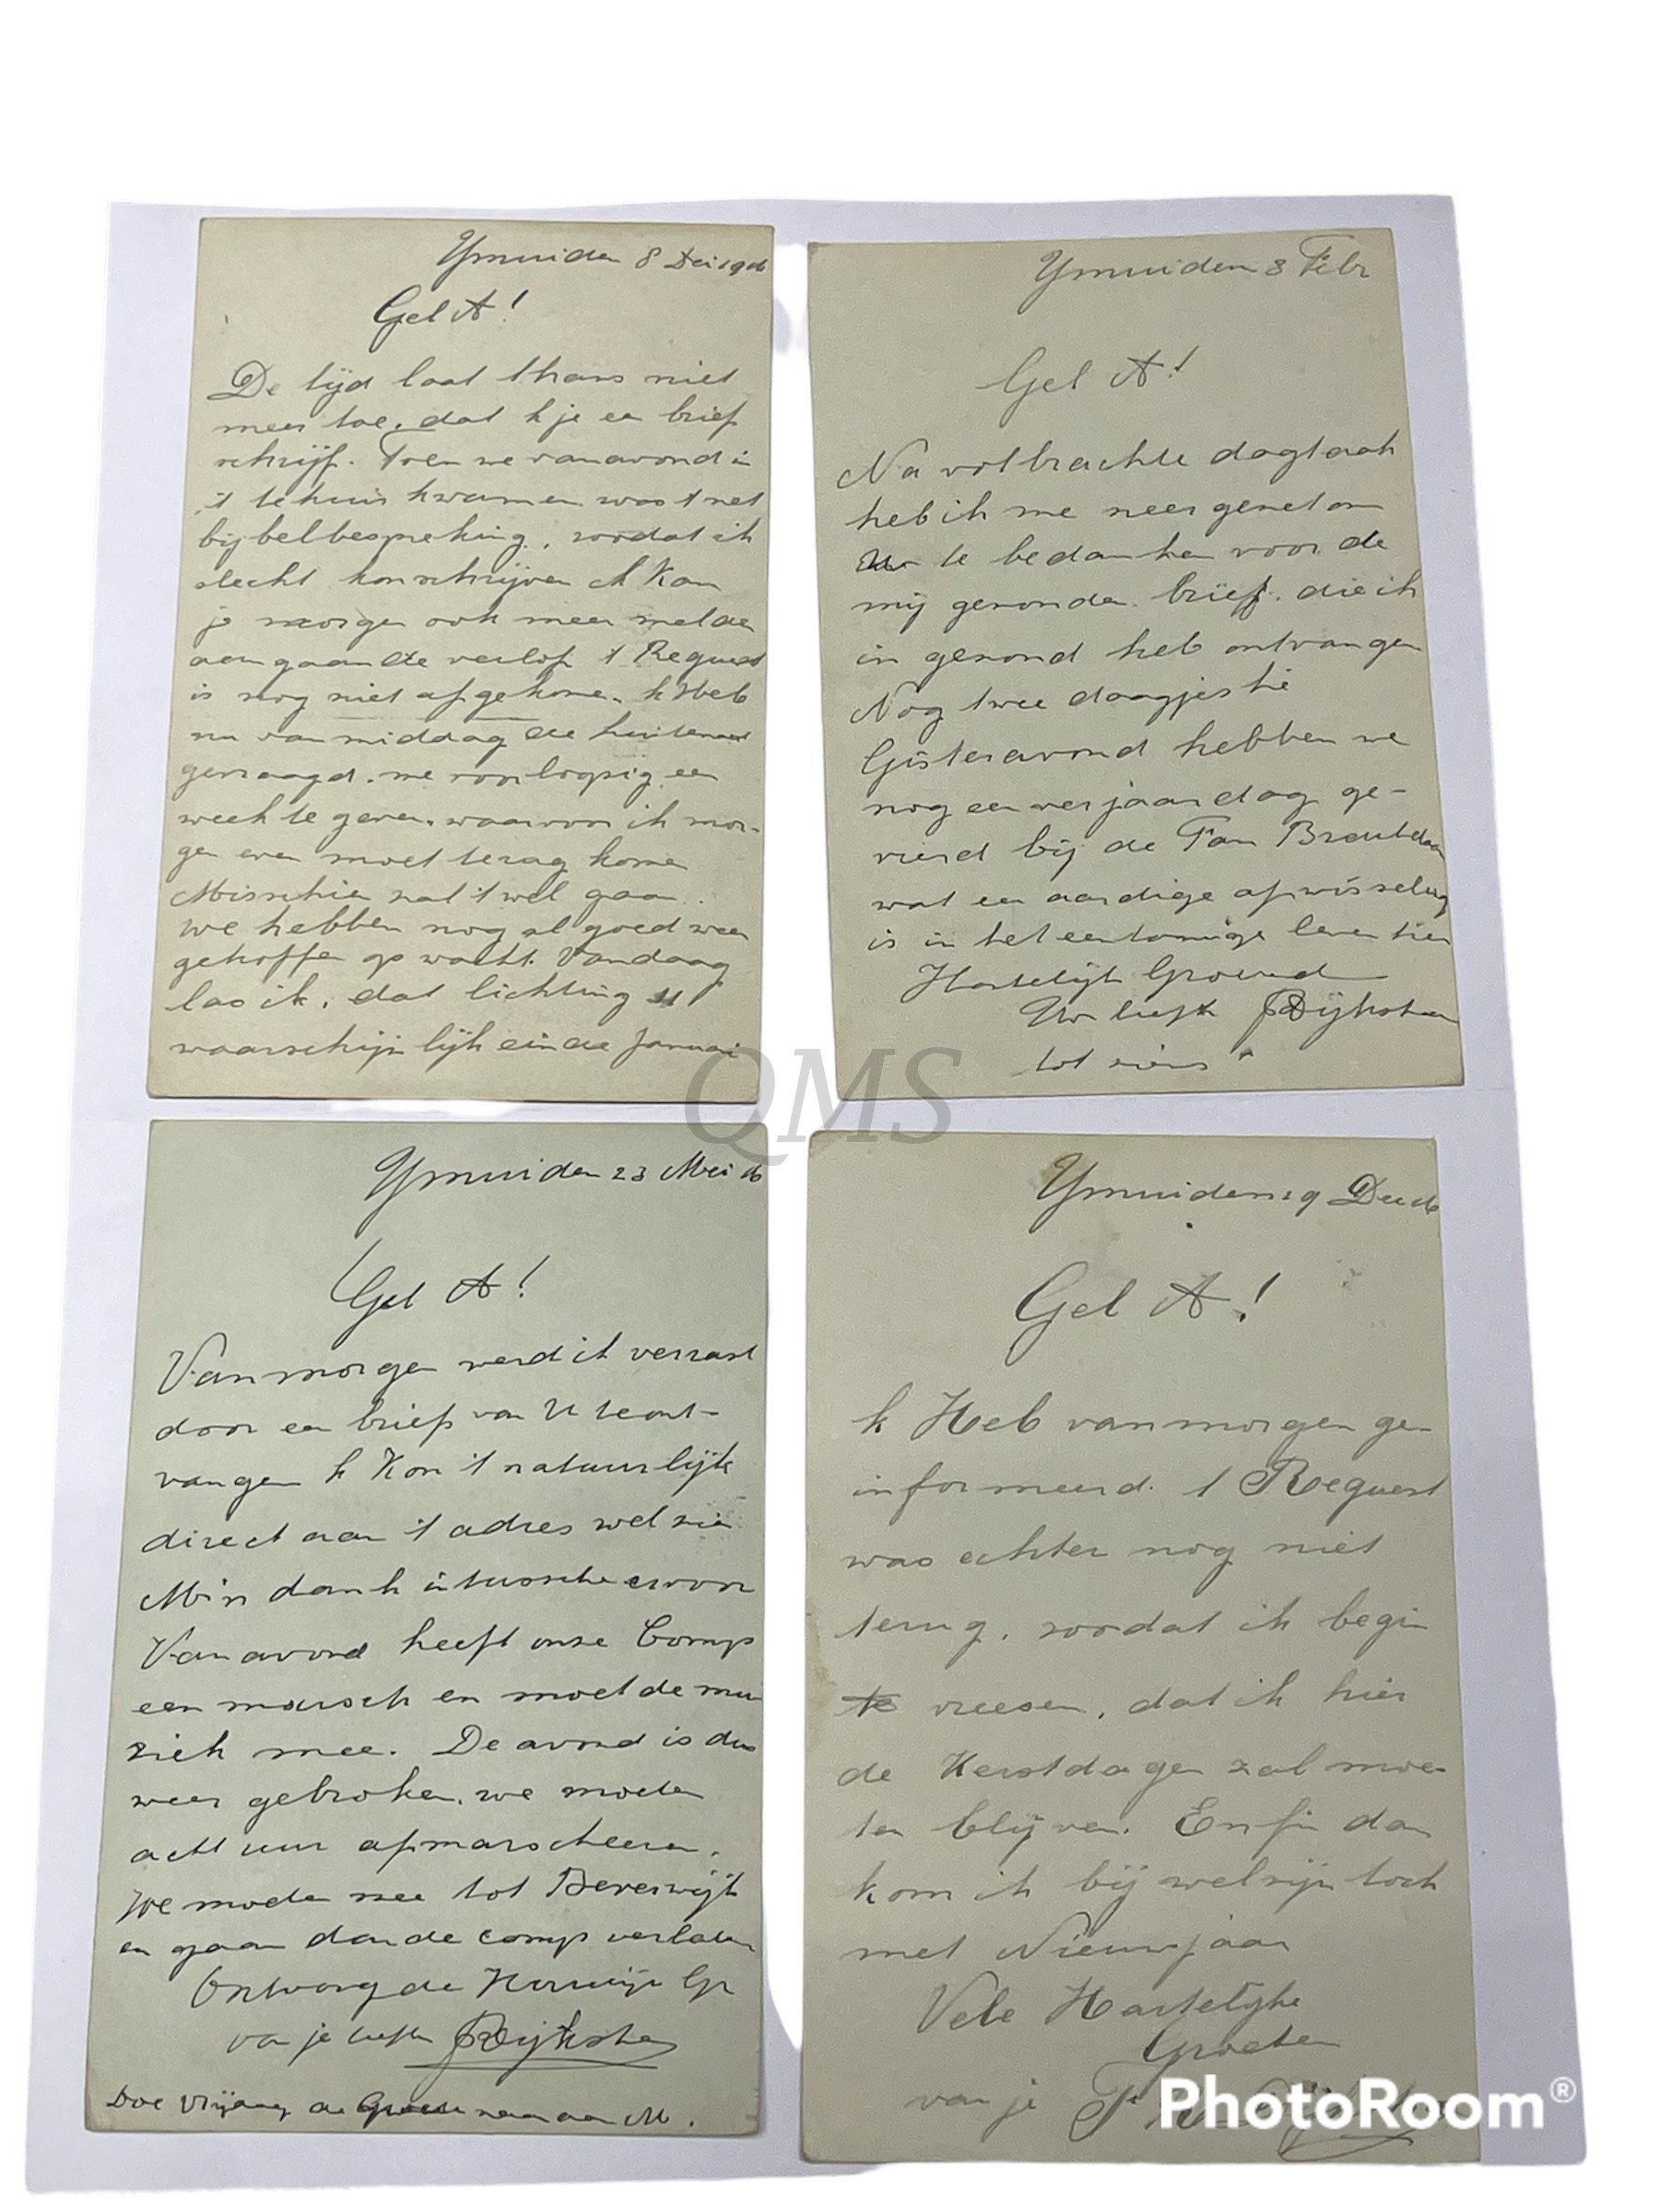 Ymuiden 8 Dec 1916
Gel A!
De tijd laat thans niet
meer toe, dat k je een brief
schrijf. Toen we vanavond in
't tehuis kwamen was 't net
bijbelbespreking, zoodat ik
slecht kon schrijven ik kan
je morgen ook meer melden
aangaande verlof 't Request
is nog niet afgekomen. k Heb
nu van middag de luitenant
gevraagd. me voorloopig een
week te geven. waarvoor ik mor-
gen even moet terug komen
Misschien zal 't wel gaan.
We hebben nog al goed weer
getroffen op wacht. Vandaag
las ik, dat lichting 11
waarschijnlijk einde Januari
Ymuiden 8 Febr
Gel A!
Na volbrachte dagtaak
heb ik me neergezet om
U te bedanken voor de
mij gezonden brief. die ik
in gezond heb ontvangen
Nog twee daagjes hé
Gisteravond hebben we
nog een verjaardag ge-
vierd bij de Fam
wat een aardige afwisseling
is in het eentonige leven hier
Hartelijk Groetend
Uw liefh Rijksten
tot ziens
Ymuiden 23 Mei 16
Gel A!
Vanmorgen werd ik verrast
door een brief van U te ont-
vangen k Kon 't natuurlijk
direct aan 't adres wel zien
Mijn dank intusschen ervoor
Vanavond heeft onze Comp
een marsch en moet de mu
ziek mee. De avond is dus
weer gebroken, we moeten
acht uur afmarscheeren.
We moeten mee tot Beverwijk
en gaan dan de comp verlaten
Ontvang de Gr
van je liefh Rijksten
Doe Vrijdag de Groeten aan M.
Ymuiden 19 Dec 16
Gel A!
k Heb vanmorgen ge-
informeerd. 't Request
was echter nog niet
terug, zoodat ik begin
te vreezen, dat ik hier
de Kerstdagen zal moe-
ten blijven. Enfin dan
kom ik bij welzijn toch
met Nieuwjaar
Vele Hartelijke
Groeten
van je
QMS
PhotoRoom®